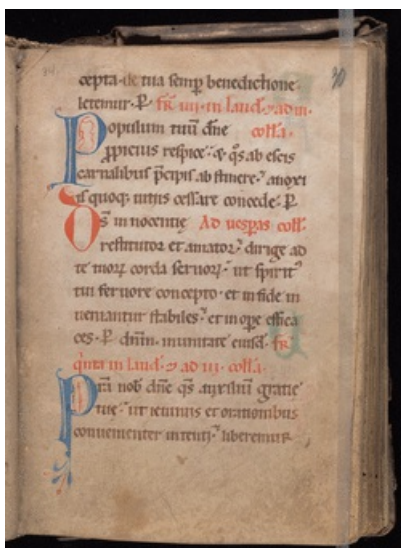 30
cepta de tua semp benedictione
letemur. P. fr iiii. in laud. ⁊ ad iii.
Populum tuū dñe coll̄a.
ppicius respice. ⁊ q̄s ab escis
carnalibus p̄cipis abstinere. a noxi
is quoq; uitiis cessare concede. P.
Ds̄ innocentie Ad uesp̄as coll̄.
restitutor et amator. dirige ad
te tuoꝝ corda seruoꝝ. ut spirit᷒
tui feruore concepto. et in fide in
ueniantur stabiles. et in ope effica
ces. P. dñm. in unitate eiusd. fr̄
q̄nta in laud. ⁊ ad iii. coll̄a.
Presta nob̄ dñe q̄s auxiliū gratie
tue. ut ieiuniis et orationibus
conuenienter intenti. liberemur